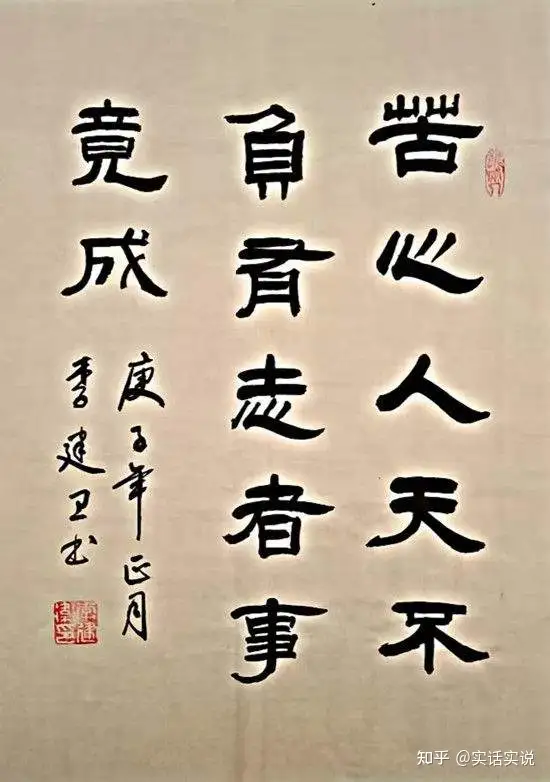 苦心人天不
負有志者事
竟成
庚子年正月
李建卫书
知乎 @实话实说